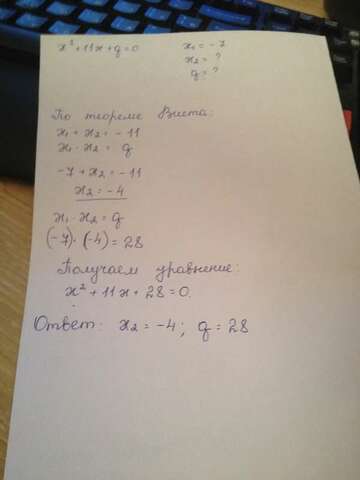 x²+11x+q=0
x₁ = -7
x₂ = ?
q = ?
По теореме Виета:
x₁ + x₂ = -11
x₁ · x₂ = q
-7 + x₂ = -11
x₂ = -4
x₁ · x₂ = q
(-7) · (-4) = 28
Получаем уравнение:
x² + 11x + 28 = 0.
Ответ: x₂ = -4; q = 28